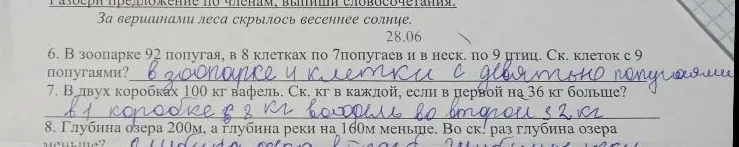 Разбери предложение по членам, выпиши словосочетания.
За вершинами леса скрылось весеннее солнце.
28.06
6. В зоопарке 92 попугая, в 8 клетках по 7попугаев и в неск. по 9 птиц. Ск. клеток с 9
попугаями? в зоопарке 4 клетки с девятью попугаями
7. В двух коробках 100 кг вафель. Ск. кг в каждой, если в первой на 36 кг больше?
в 1 коробке 8 кг во второй 32 кг
8. Глубина озера 200м, а глубина реки на 160м меньше. Во ск. раз глубина озера
меньше?